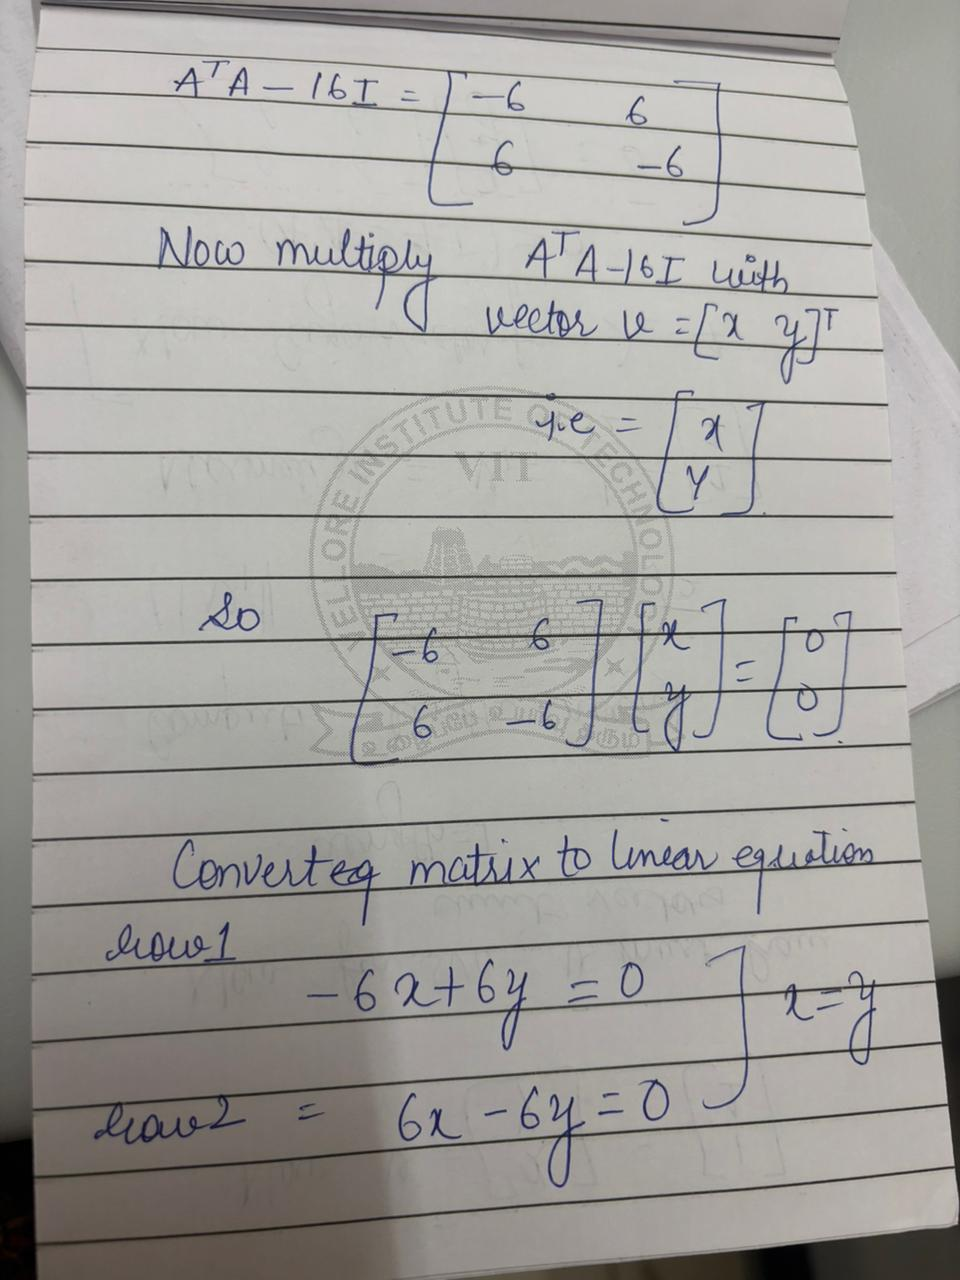 AᵀA - 16I = [ -6 6
6 -6 ]
Now multiply AᵀA - 16I with
vector v = [x y]ᵀ
i.e = [ x
Y ]
VELLORE INSTITUTE OF TECHNOLOGY
VIT
So [ -6 6 ] [ x ] = [ 0 ]
[ 6 -6 ] [ y ] [ 0 ]
Converteg matrix to linear equation
row 1
-6x + 6y = 0 ] x = y
row 2 = 6x - 6y = 0